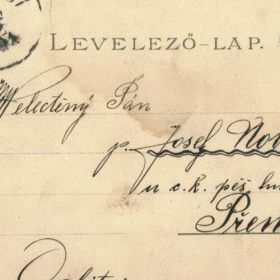 LEVELEZŐ-LAP.
Welectěný Pán
p. Josef Nov
u c. k. pěš.
Přem